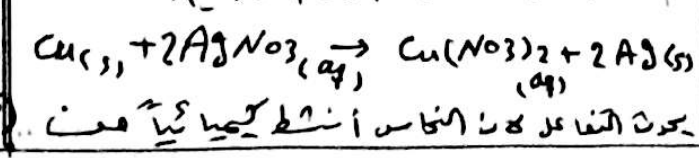 Cu(s) + 2AgNO3(aq) → Cu(NO3)2(aq) + 2Ag(s)
يحدث التفاعل لان النحاس أنشط كيميائياً من